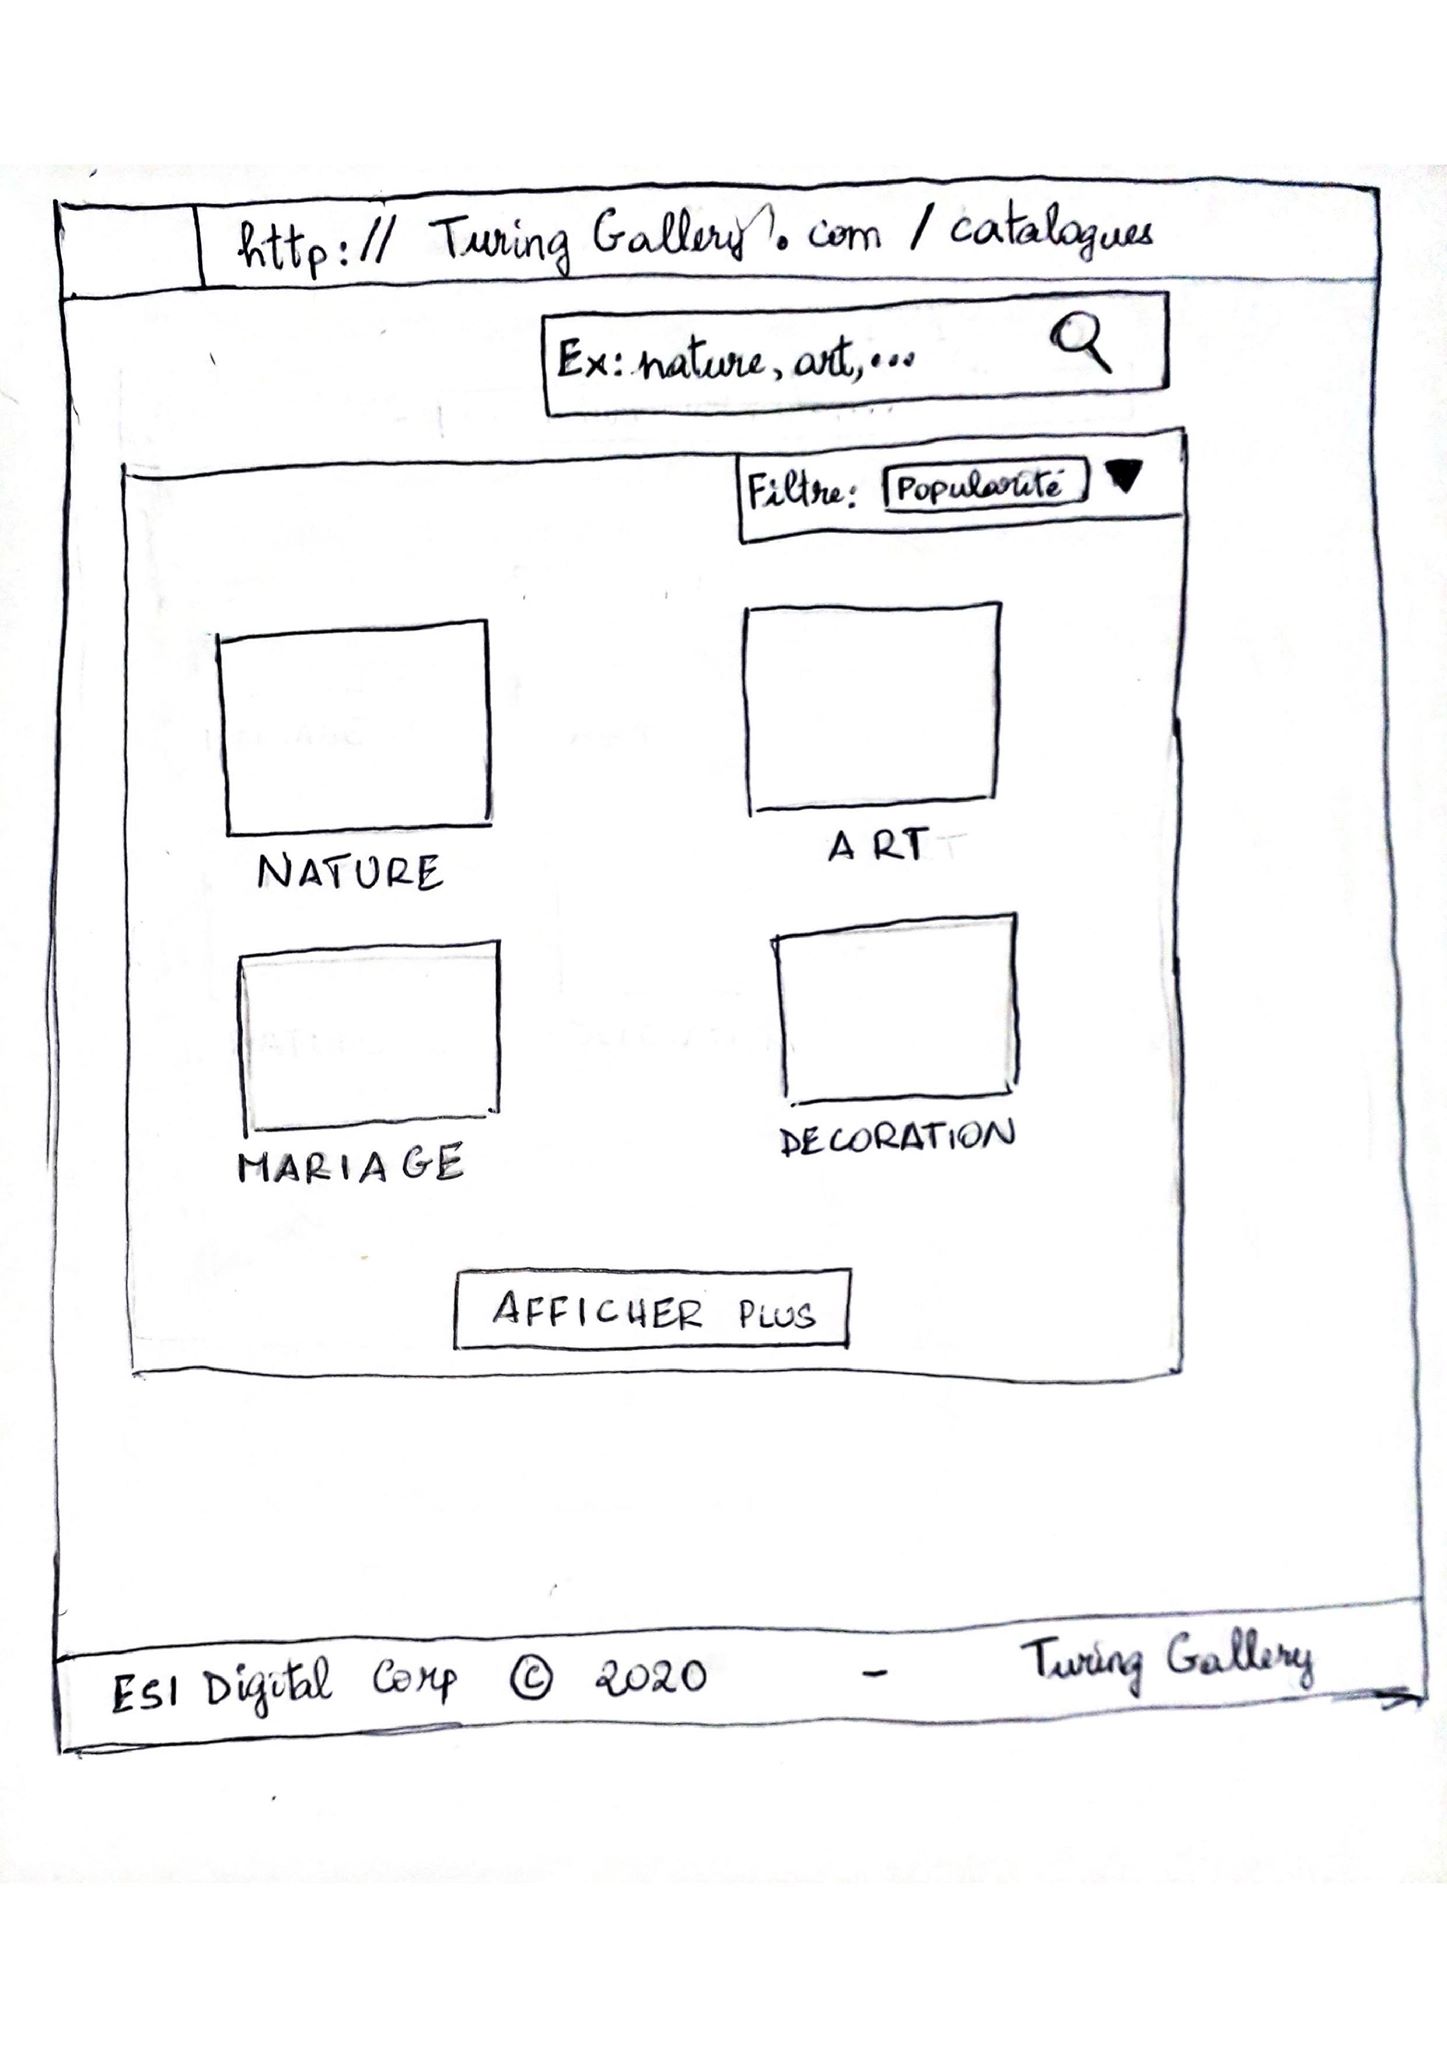 http:// Turing Gallery.com / catalogues
Ex: nature, art,...
Filtre: Popularité
NATURE
ART
MARIAGE
DECORATION
AFFICHER PLUS
ESI Digital Corp © 2020 - Turing Gallery